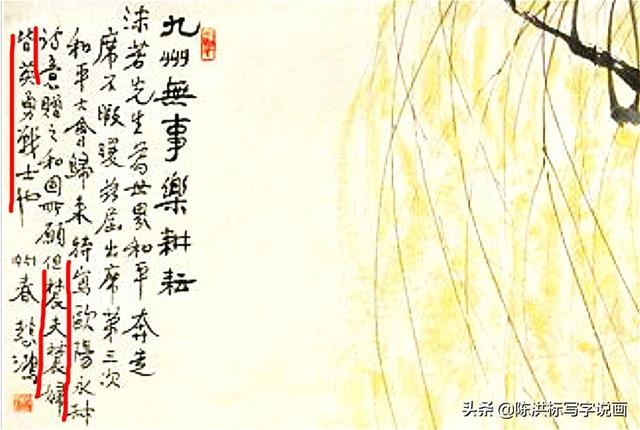 九州無事樂耕耘
沫若先生為世界和平奔走
席不暇暖茲屆出席第三次
和平大會歸來特寫歐陽永叔
詩意贈之和固所願但農夫農婦
皆英勇戰士也 1951春 悲鴻
头条 @陈洪标写字说画